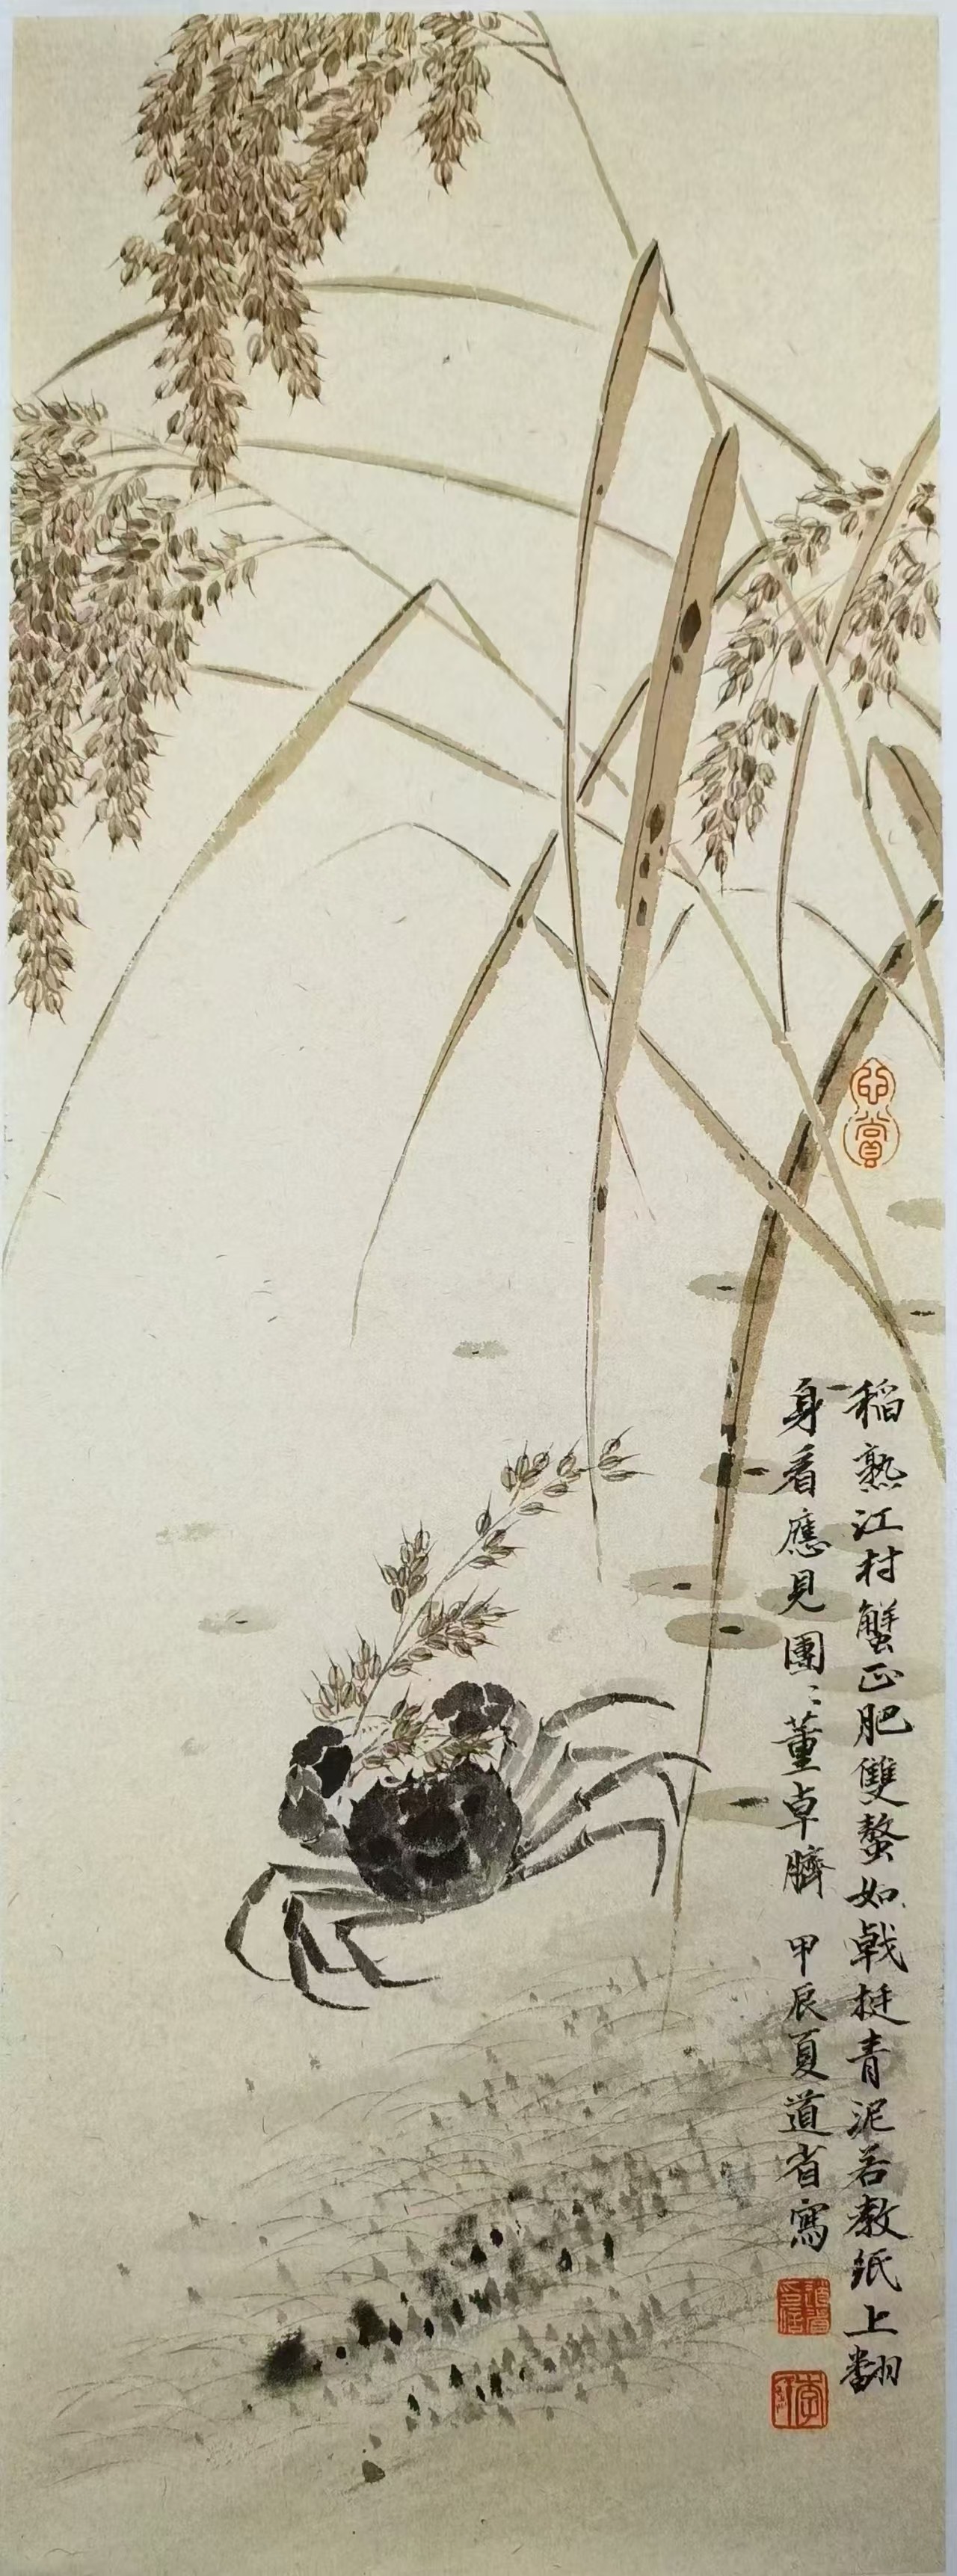 稻熟江村蟹正肥雙螯如戟挺青泥若教紙上翻
身看應見團〻董卓臍 甲辰夏道省寫